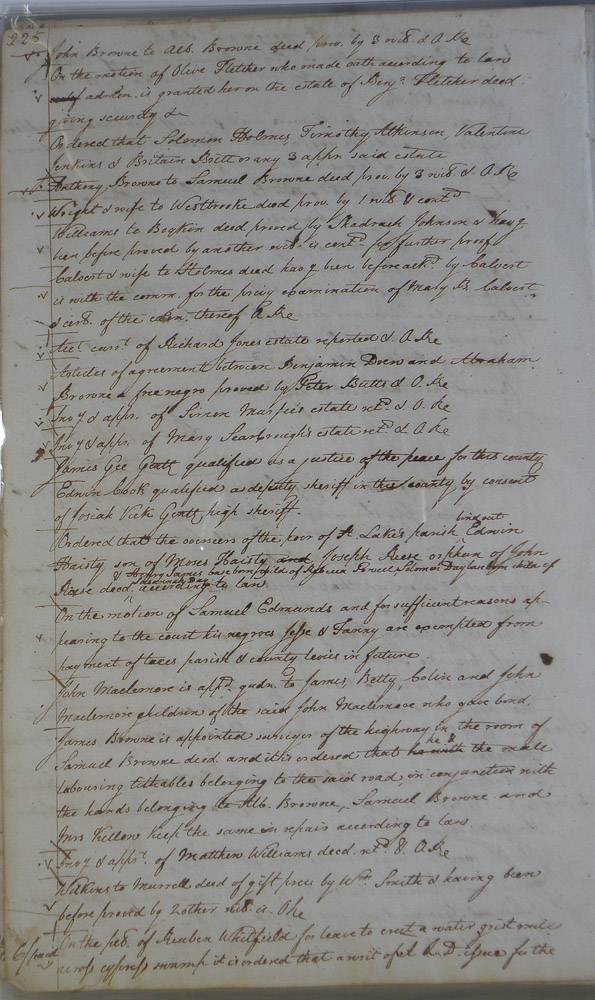 225
John Browne to Alb. Browne deed prov. by 3 wit.s & O.Re
On the motion of Olive Fletcher who made oath according to law
admon. is granted her on the estate of Benj.a Fletcher deced
giving security &c
Ordered that Solomon Holmes, Timothy Atkinson, Valentine
Jenkins & Britain Britt or any 3 appr. said estate
Anthony Browne to Samuel Browne deed prov. by 3 wit.s & O.Re
Wright & wife to Westbrooke deed prov. by 1 wit.s & cont.d
Williams to Boykin deed proved by Shadrach Johnson & hav.g
been before proved by another wit. is cont.d for further proof
Calvert & wife to Holmes deed hav.g been before ack.d by Calvert
is with the comm. for the privy examination of Mary B. Calvert
& cert. of the exn. thereof O.Re
Acc.t curr.t of Richard Jones estate reported & O.Re
Articles of agreement between Benjamin Drew and Abraham
Browne a free negro proved by Peter Butts & O.Re
Inv.y & appr. of Simon estate ret.d & O.Re
Inv.y & appr. of Mary Scarbrough's estate ret.d & O.Re
James Gee Gent. qualified as a justice of the peace for this county
Edwin Cook qualified a deputy sheriff in this county, by consent
of Josiah Vick Gent. high sheriff.
Ordered that the overseers of the poor of St. Luke's parish bind out Edwin
Haisty son of Moses Haisty and Joseph Reese orphan of John
& Henry James base born child of Rebecca Powell, Solomon Day base born child of
Reese deced. Susannah Day according to law
On the motion of Samuel Edmunds and for sufficient reasons ap-
pearing to the court his negroes Jesse & Fanny are exempted from
payment of taxes parish & county levies in future
John Maclemore is app.d gudn. to James, Betty, and John
Maclemore children of the said John Maclemore who gave bond.
James Browne is appointed surveyor of the highway in the room of
Samuel Browne deced. and it is ordered that he with he & the male
labouring tithables belonging to the said road, in conjunction with
the hands belonging to Alb. Browne, Samuel Browne and
Mrs Killow keep the same in repair according to law.
Inv.y & appr.t of Matthew Williams deced. ret.d & O.Re
Wilkins to Murrell deed of gift prov. by W.m Smith & having been
before proved by 2 other wit.s O.Re
On the pet.s of Reuben Whitfield for leave to erect a water grist mill
across cypress swamp it is ordered that a writ of A.Q.D. issue for the